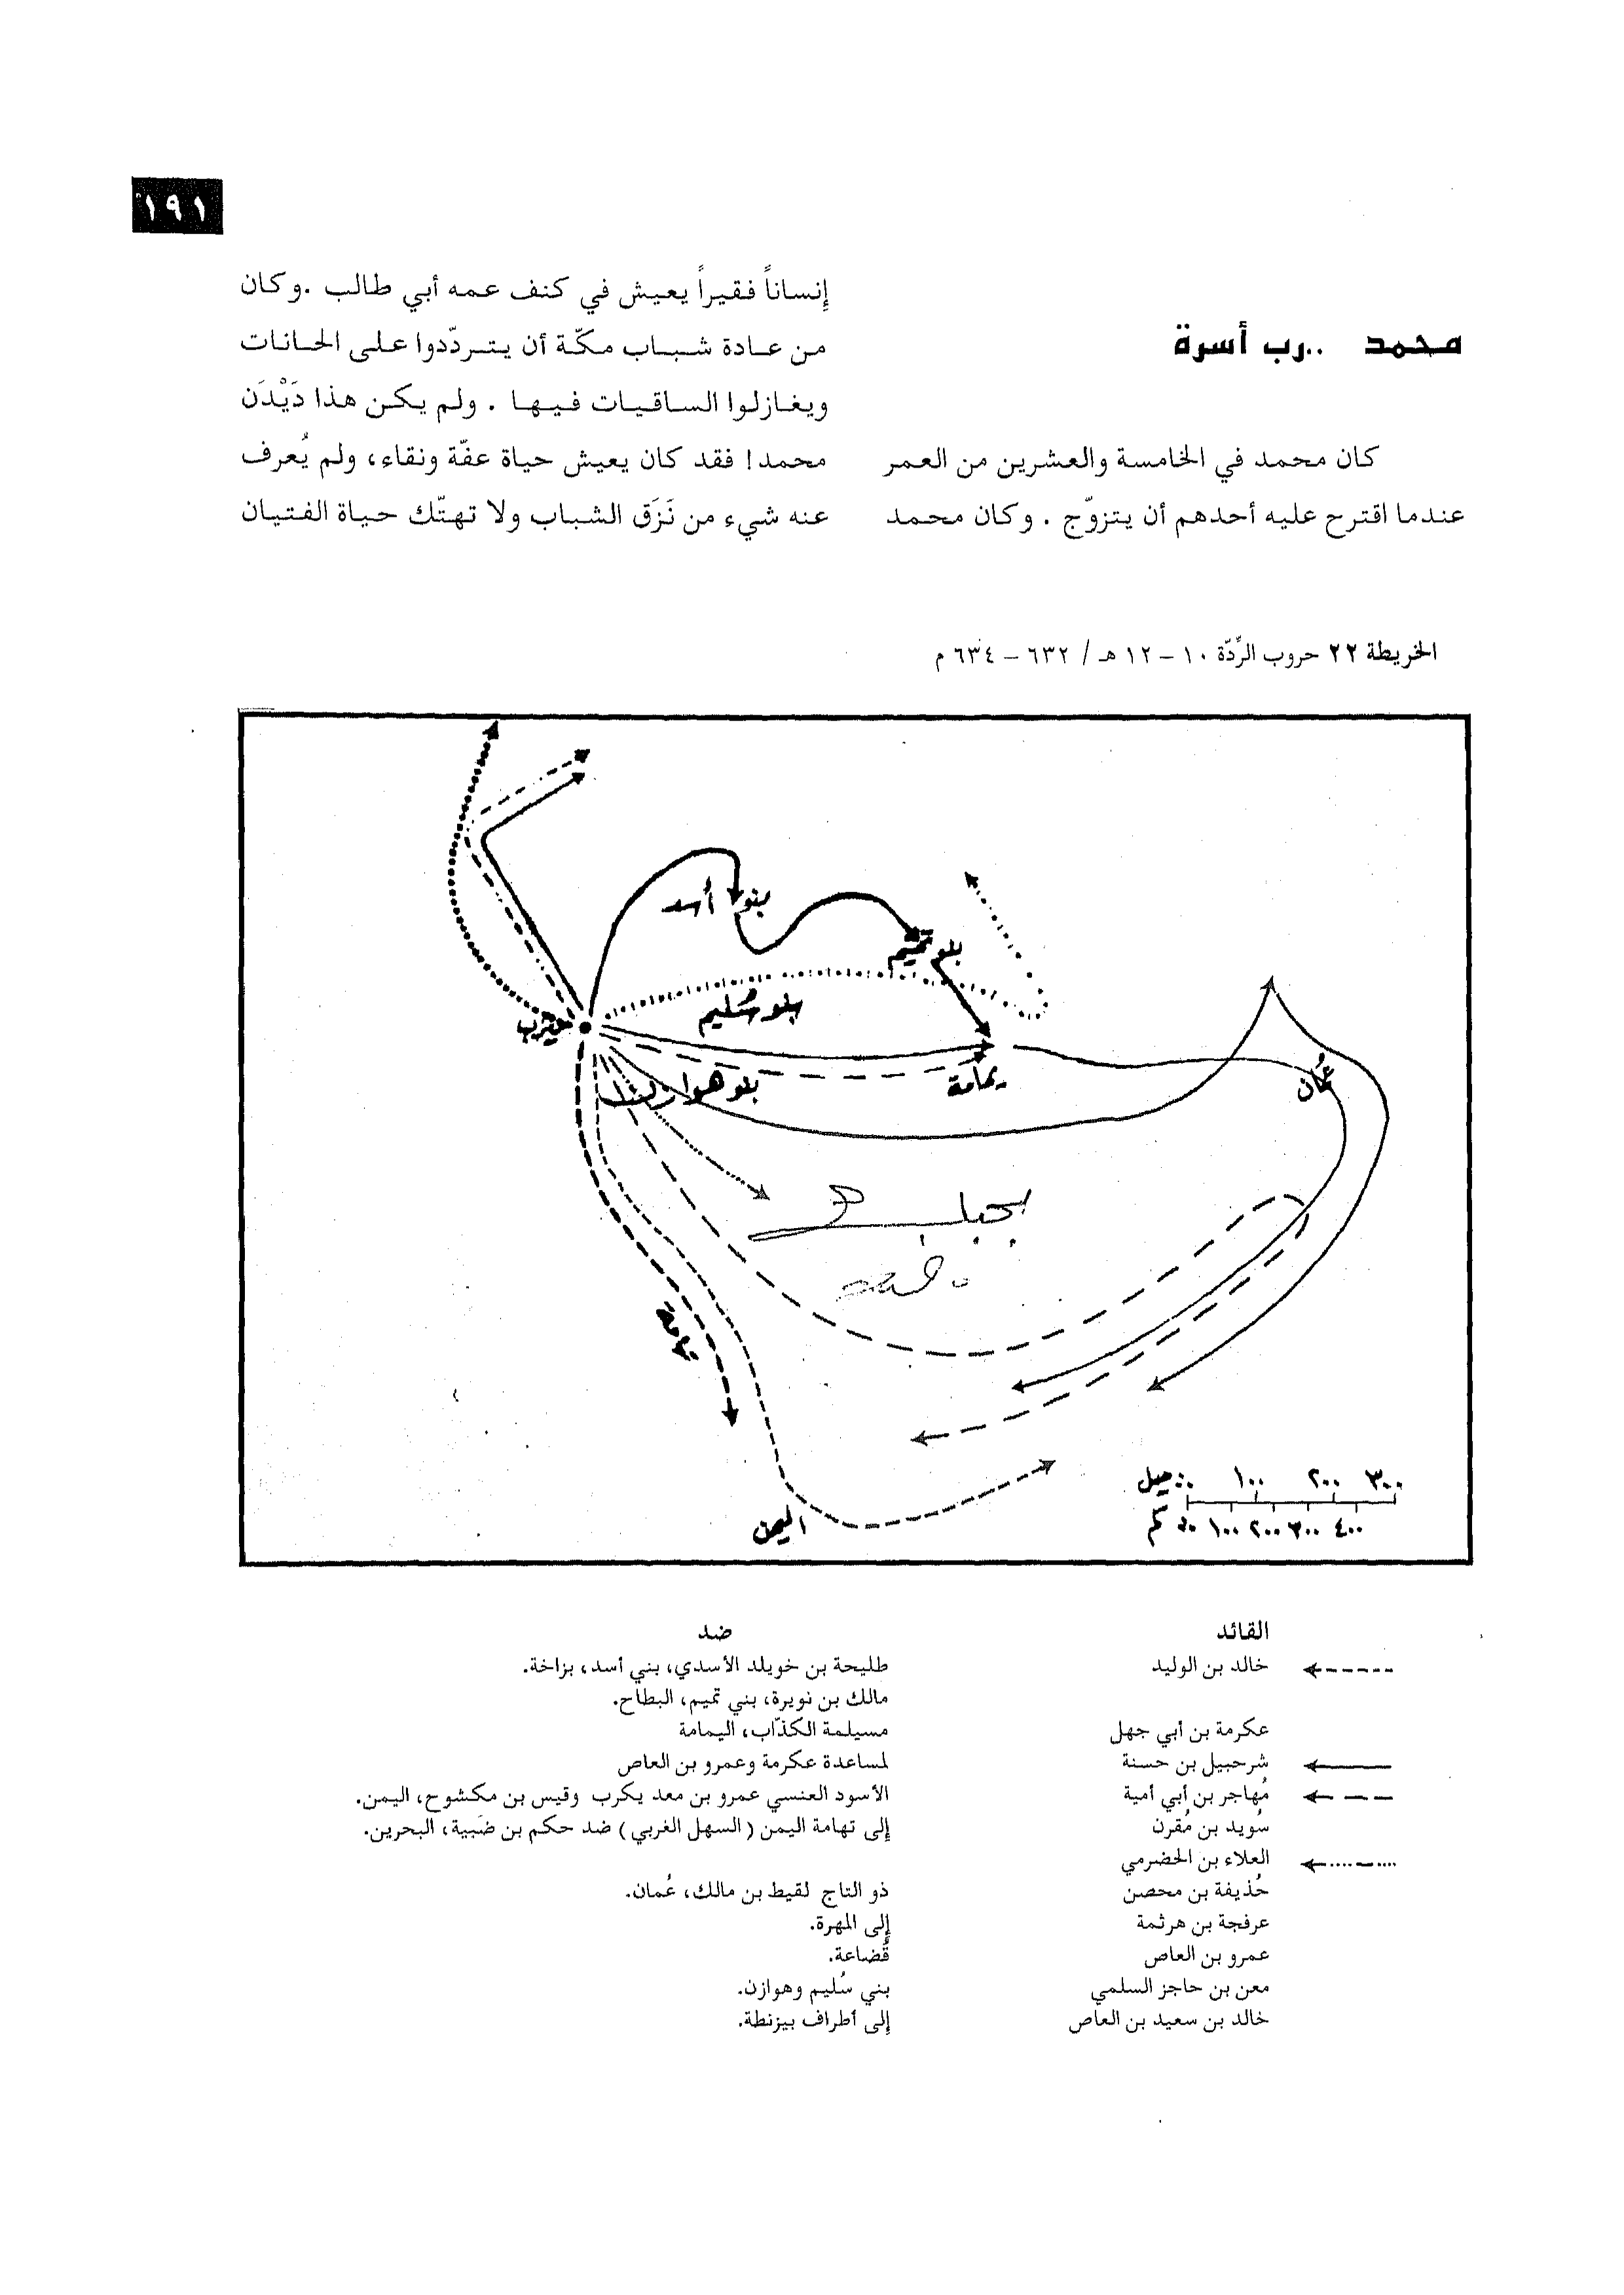 ١٩١
محمد ..رب أسرة
كان محمد في الخامسة والعشرين من العمر
عندما اقترح عليه أحدهم أن يتزوّج . وكان محمد
إنساناً فقيراً يعيش في كنف عمه أبي طالب .وكان
من عادة شباب مكّة أن يتردّدوا على الحانات
ويغازلوا الساقيات فيها . ولم يكن هذا دَيْدَن
محمد! فقد كان يعيش حياة عفّة ونقاء، ولم يُعرف
عنه شيء من نَزَق الشباب ولا تهتّك حياة الفتيان
الخريطة ٢٢ حروب الرِّدّة ١٠ – ١٢ هـ / ٦٣٢ – ٦٣٤ م
بنو أسد
بنو تميم
بنو سُليم
يثرب
بنو هوازن
يمامة
عُمان
تهامة
اليمن
ميل ١٠٠ ٢٠٠ ٣٠٠
كم ١٠٠ ٢٠٠ ٣٠٠ ٤٠٠
القائد ضد
خالد بن الوليد طليحة بن خويلد الأسدي، بني أسد، بزاخة.
مالك بن نويرة، بني تميم، البطاح.
عكرمة بن أبي جهل مسيلمة الكذّاب، اليمامة
شرحبيل بن حسنة لمساعدة عكرمة وعمرو بن العاص
مُهاجر بن أبي أمية الأسود العنسي عمرو بن معد يكرب وقيس بن مكشوح، اليمن.
سُويد بن مُقرن إلى تهامة اليمن (السهل الغربي) ضد حكم بن ضَبية، البحرين.
العلاء بن الحضرمي
حُذيفة بن محصن ذو التاج لقيط بن مالك، عُمان.
عرفجة بن هرثمة إلى المهرة.
عمرو بن العاص قُضاعة.
معن بن حاجز السلمي بني سُليم وهوازن.
خالد بن سعيد بن العاص إلى أطراف بيزنطة.